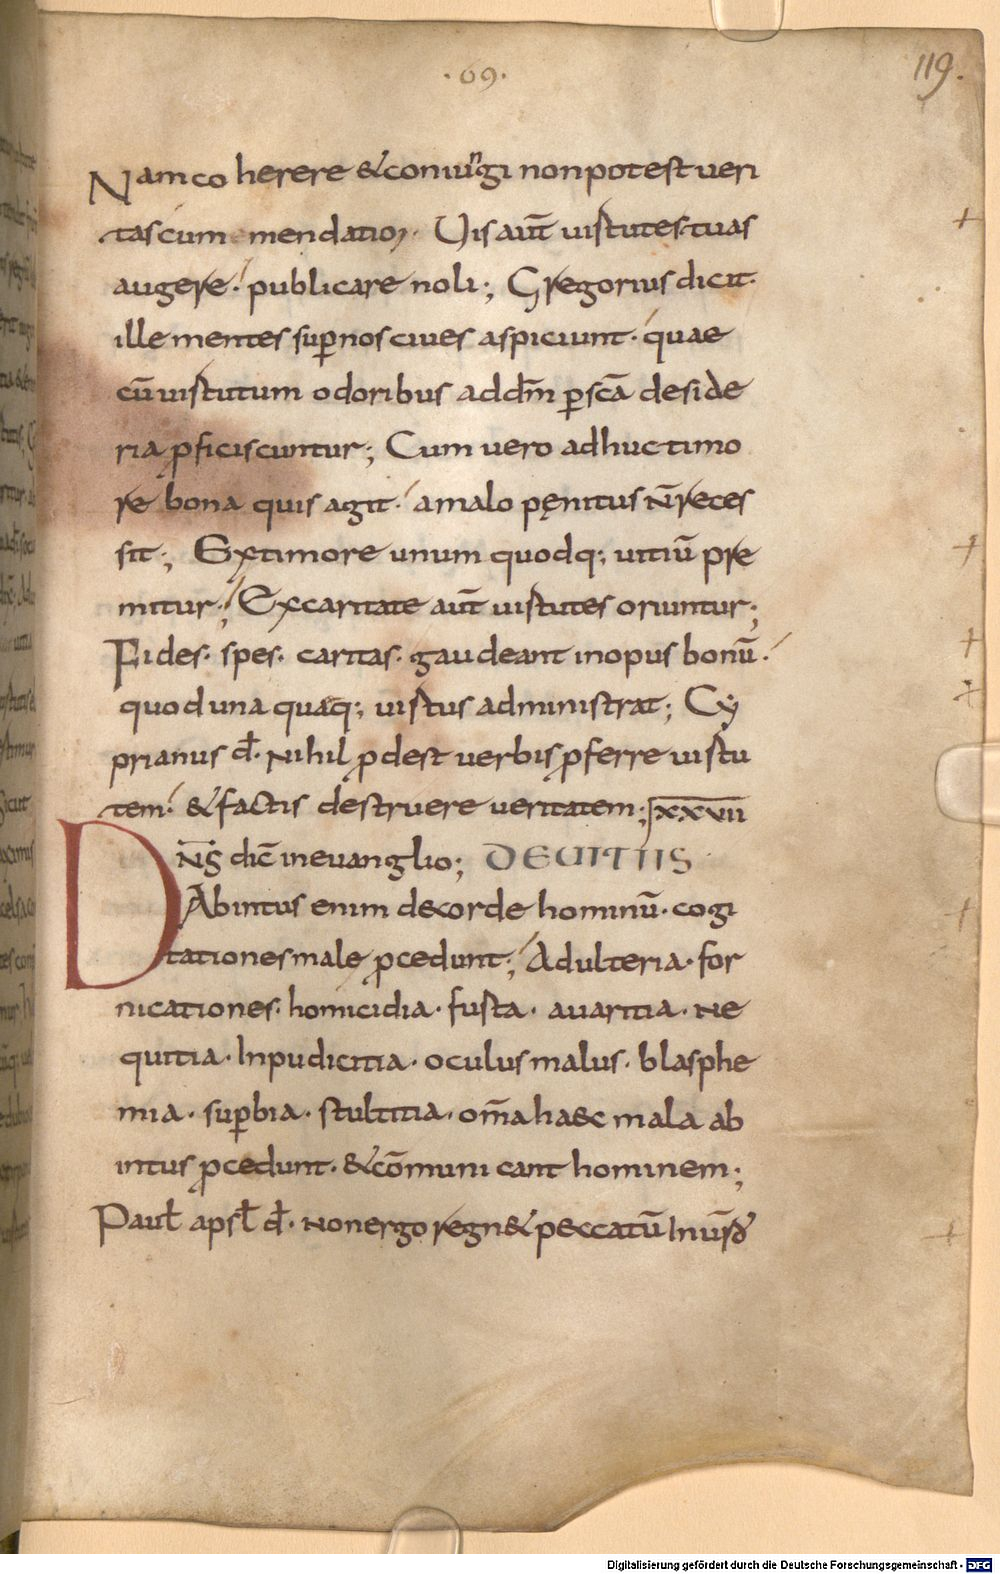 · 69 ·
119.
Nam co herere & coniungi non potest veri
tas cum mendatio; Uis aut̄ virtutes tuas
augere · publicare noli; Gregorius dicit ·
ille mentes sup̱nos cives aspiciunt · quae
cū virtutum odoribus ad dm̄ p̱ scā deside
ria ꝓficiscuntur; Cum vero adhuc timo
re bona quis agit · a malo pęnitus n̄ reces
sit; Ex timore unum quodq; vitiū pre
mitur; Ex caritate aut̄ virtutes oriuntur;
Fides · spes · caritas · gaudeant in opus bonū ·
quod una quaq; virtus administrat; Cy
prianus d̄ · Nihil ꝓdest verbis ꝓferre virtu
tem · & factis destruere veritatem; XXVII
DN̄S dic̄ in evanglio; DE UITIIS
Ab intus enim de corde hominū · cogi
tationes male ꝓcedunt; Adulteria · for
nicationes · homicidia · furta · avaritia · ne
quitia · Inpudicitia · oculus malus · blasphe
mia · sup̱bia · stultitia · om̄a haec mala ab
intus ꝓcedunt · & cōmuni cant hominem;
Paul̄ apsl̄ d̄ · Non ergo regn& peccatū In
Digitalisierung gefördert durch die Deutsche Forschungsgemeinschaft - DFG